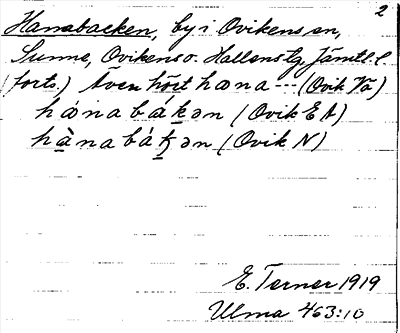 2
Hanabacken, by i Ovikens sn,
Sunne, Ovikens o. Hallens tg, Jämtl. l.
(forts.) Även hört hæna --- (Ovik Vä)
hánabákən (Ovik E A)
hànabákən (Ovik N)
E. Terner 1919
Ulma 463:10